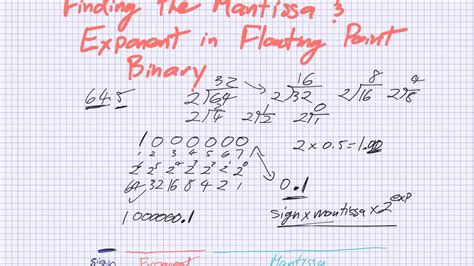 Finding the Mantissa &
Exponent in Floating Point
Binary
64.5
32
2√64
16
2√32
8
2√16
4
2√8
2
2√4
1
2√2
0
2√1
1 0 0 0 0 0 0
1 2 3 4 5 6 7
2 × 0.5 = 1.00
64 32 16 8 4 2 1
0.1
1000000.1
sign × mantissa × 2^exp
Sign Exponent Mantissa